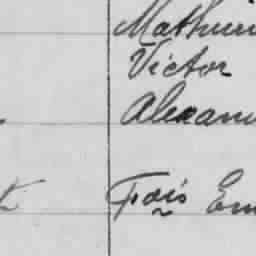 Mathuri
Victor
Alexan
Fçois Em